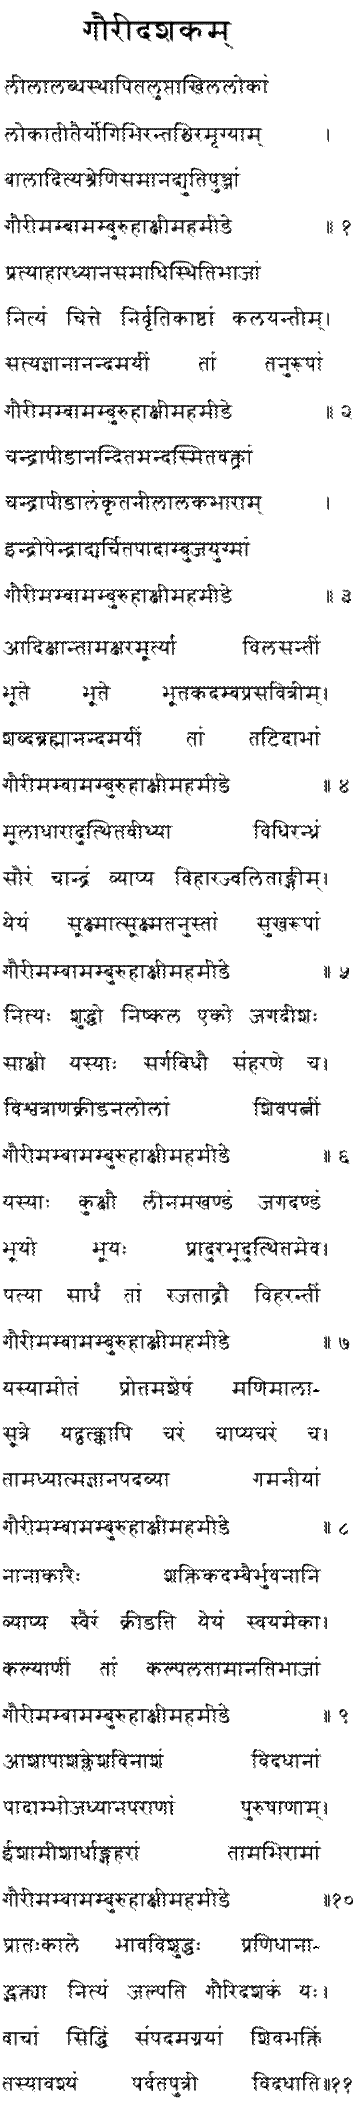 गौरीदशकम्
लीलालब्धस्थापितलुप्ताखिललोकां
लोकातीतैर्योगिभिरन्तश्चिरमृग्याम् ।
बालादित्यश्रेणिसमानद्युतिपुञ्जां
गौरीमम्बामम्बुरुहाक्षीमहमीडे ॥ १
प्रत्याहारध्यानसमाधिस्थितिभाजां
नित्यं चित्ते निर्वृतिकाष्ठां कलयन्तीम्।
सत्यज्ञानानन्दमयीं तां तनुरूपां
गौरीमम्बामम्बुरुहाक्षीमहमीडे ॥ २
चन्द्रापीडानन्दितमन्दस्मितवक्त्रां
चन्द्रापीडालंकृतनीलालकभाराम् ।
इन्द्रोपेन्द्राद्यर्चितपादाम्बुजयुग्मां
गौरीमम्बामम्बुरुहाक्षीमहमीडे ॥ ३
आदिक्षान्तामक्षरमूर्त्या विलसन्तीं
भूते भूते भूतकदम्बप्रसवित्रीम्।
शब्दब्रह्मानन्दमयीं तां तटिदाभां
गौरीमम्बामम्बुरुहाक्षीमहमीडे ॥ ४
मूलाधारादुत्थितवीथ्या विधिरन्ध्रं
सौरं चान्द्रं व्याप्य विहारज्वलिताङ्गीम्।
येयं सूक्ष्मात्सूक्ष्मतनुस्तां सुखरूपां
गौरीमम्बामम्बुरुहाक्षीमहमीडे ॥ ५
नित्यः शुद्धो निष्कल एको जगदीशः
साक्षी यस्याः सर्गविधौ संहरणे च।
विश्वत्राणक्रीडनलोलां शिवपत्नीं
गौरीमम्बामम्बुरुहाक्षीमहमीडे ॥ ६
यस्याः कुक्षौ लीनमखण्डं जगदण्डं
भूयो भूयः प्रादुरभूदुत्थितमेव।
पत्या सार्धं तां रजताद्रौ विहरन्तीं
गौरीमम्बामम्बुरुहाक्षीमहमीडे ॥ ७
यस्यामोतं प्रोतमशेषं मणिमाला-
सूत्रे यद्वत्क्वापि चरं चाप्यचरं च।
तामध्यात्मज्ञानपदव्या गमनीयां
गौरीमम्बामम्बुरुहाक्षीमहमीडे ॥ ८
नानाकारैः शक्तिकदम्बैर्भुवनानि
व्याप्य स्वैरं क्रीडति येयं स्वयमेका।
कल्याणीं तां कल्पलतामानतिभाजां
गौरीमम्बामम्बुरुहाक्षीमहमीडे ॥ ९
आशापाशक्लेशविनाशं विदधानां
पादाम्भोजध्यानपराणां पुरुषाणाम्।
ईशामीशार्धाङ्गहरां तामभिरामां
गौरीमम्बामम्बुरुहाक्षीमहमीडे ॥१०
प्रातःकाले भावविशुद्धः प्रणिधाना-
द्भक्त्या नित्यं जल्पति गौरिदशकं यः।
वाचां सिद्धिं संपदमग्र्यां शिवभक्तिं
तस्यावश्यं पर्वतपुत्री विदधाति॥११